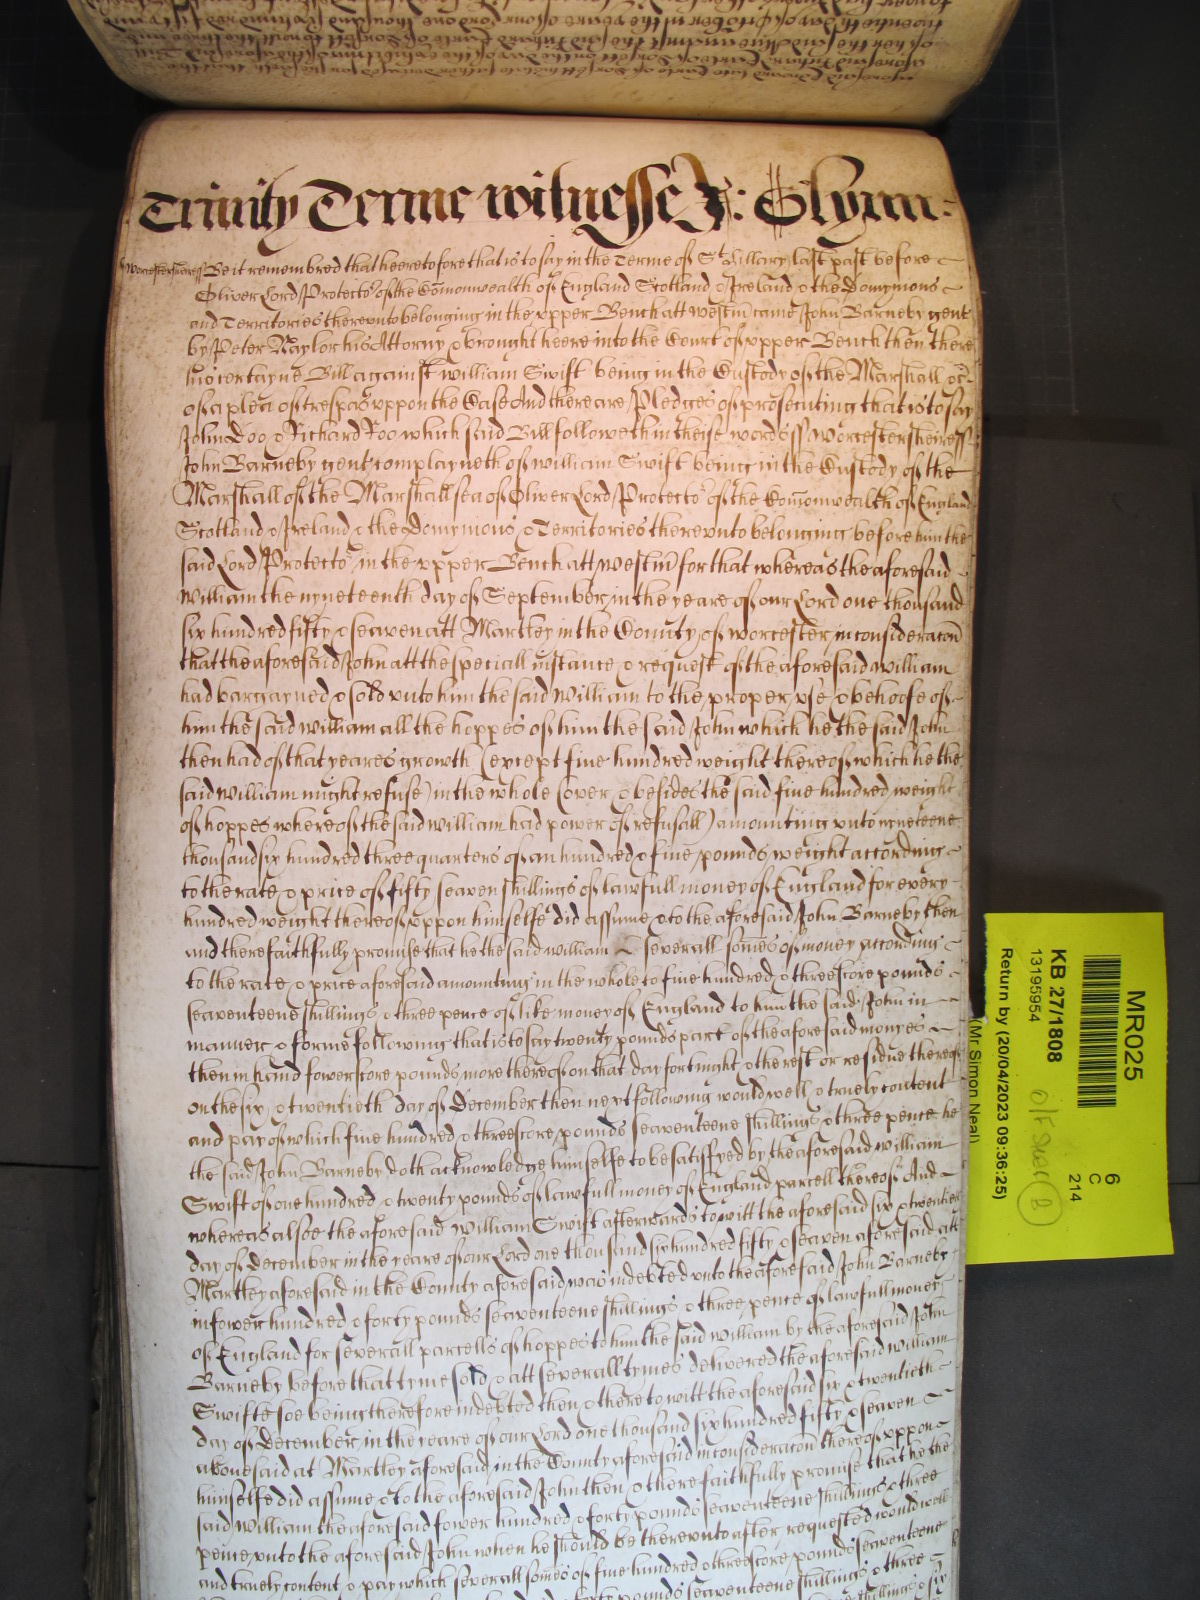 Trinity Terme witnesse J: Glynn.
Worcestershire ss Be it remembred that heeretofore that is to say in the Terme of St. Hillary last past before
Oliver Lord Protector of the Comonwealth of England Scotland & Ireland & the Domynions
and Territories thereunto belonging in the upper Bench att Westm came John Barneby gent
by Peter Naylor his Attorny & brought heere into the Court of upper Bench then there
his certayne Bill against William Swift being in the Custody of the Marshall &c
of a plea of trespas uppon the Case And there are Pledges of prosecuting that is to say
John Doo & Richard Roo which said Bill followeth in theise words ss Worcestersheire ss
John Barneby gent complayneth of William Swift being in the Custody of the
Marshall of the Marshallsea of Oliver Lord Protector of the Comonwealth of England
Scotland & Ireland & the Domynions & Territories thereunto belonging before him the
said Lord Protector in the upper Bench att Westm for that whereas the aforesaid
William the nyneteenth day of September in the yeare of our Lord one thousand
six hundred fifty & seaven att Martley in the County of Worcester in consideracon
that the aforesaid John att the speciall instance & request of the aforesaid William
had bargayned & sold unto him the said William to the proper use & behoofe of
him the said William all the hoppes of him the said John which he the said John
then had of that yeares growth (except five hundred weight thereof which he the
said William might refuse) in the whole (over & besides the said five hundred weight
of hoppes whereof the said William had power of refusall) amounting unto nyneteene
thousand six hundred three quarters of an hundred & five pounds weight according
to the rate & price of fifty seaven shillings of lawfull money of England for every
hundred weight thereof uppon himselfe did assume & to the aforesaid John Barneby then
and there faithfully promise that he the said William severall somes of money according
to the rate & price aforesaid amounting in the whole to five hundred & threescore pounds
seaventeene shillings & three pence of like money of England to him the said John in
manner & forme following that is to say twenty pounds part of the aforesaid monyes
then in hand fowerscore pounds more thereof on that day fortnight & the rest or residue thereof
on the six & twentieth day of December then next following would well & truely content
and pay of which five hundred & threescore pounds seaventeene shillings & three pence he
the said John Barneby doth acknowledge himselfe to be satisfyed by the aforesaid William
Swift of one hundred & twenty pounds of lawfull money of England parcell thereof And
whereas alsoe the aforesaid William Swift afterwards to witt the aforesaid six & twentieth
day of December in the yeare of our Lord one thousand six hundred fifty & seaven aforesaid att
Martley aforesaid in the County aforesaid was indebted unto the aforesaid John Barneby
in fower hundred & forty pounds seaventeene shillings & three pence of lawfull money
of England for severall parcells of hoppes to him the said William by the aforesaid John
Barneby before that tyme sold & att severall tymes delivered the aforesaid William
Swift & soe being therefore indebted then & there to witt the aforesaid six & twentieth
day of December in the yeare of our Lord one thousand six hundred fifty & seaven
abovesaid at Martley aforesaid in the County aforesaid in consideracon thereof uppon
himselfe did assume & to the aforesaid John then & there faithfully promise that he the
said William the aforesaid fower hundred & forty pounds seaventeene shillings & three
pence unto the aforesaid John when he should be thereunto after requested would well
and truely content & pay which severall somes of five hundred & threescore pounds seaventeene
forty pounds seaventeene shillings & three
shillings & six
MR025
6
C
214
KB 27/1808
13195954
Return by (20/04/2023 09:36:25)
(Mr Simon Neal)